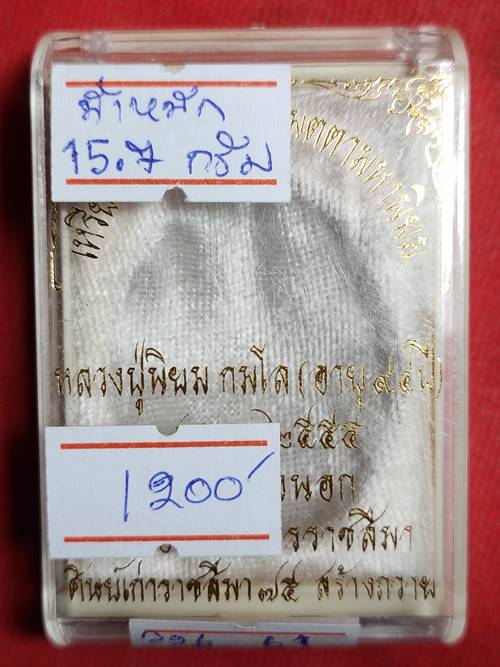 น้ำหนัก
15.7 กรัม
เหรียญ เมตตามหานิยม
หลวงปู่พิยม กมโล (อายุ ๙๔ ปี)
๒๕๕๕
นอก
ราชสีมา
ศิษย์เก่าราชสีมา ๗๕ สร้างถวาย
1200